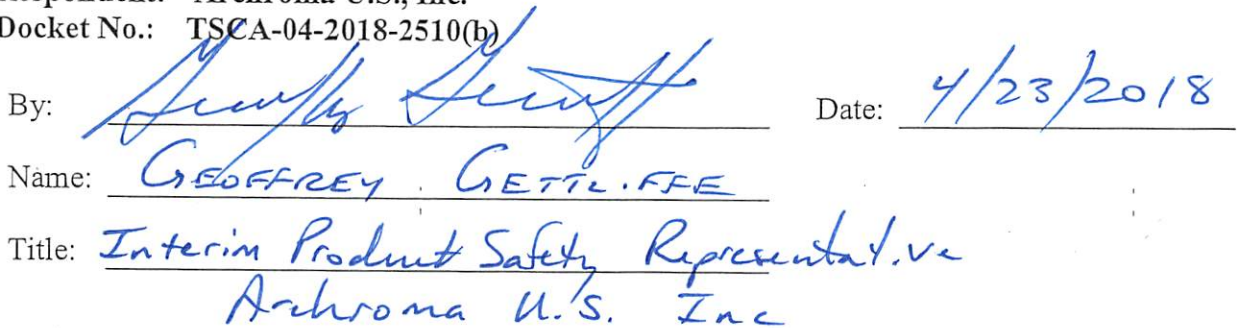 Respondent: Archroma U.S., Inc.
Docket No.: TSCA-04-2018-2510(b)
By: Date: 4/23/2018
Name: GEOFFREY GETTLIFFE
Title: Interim Product Safety Representative
Archroma U.S. Inc